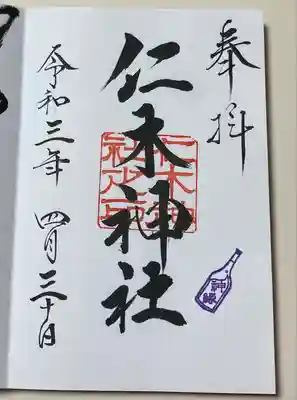 奉拝
仁木神社
仁木神社之印
令和三年 四月三十日
神縁